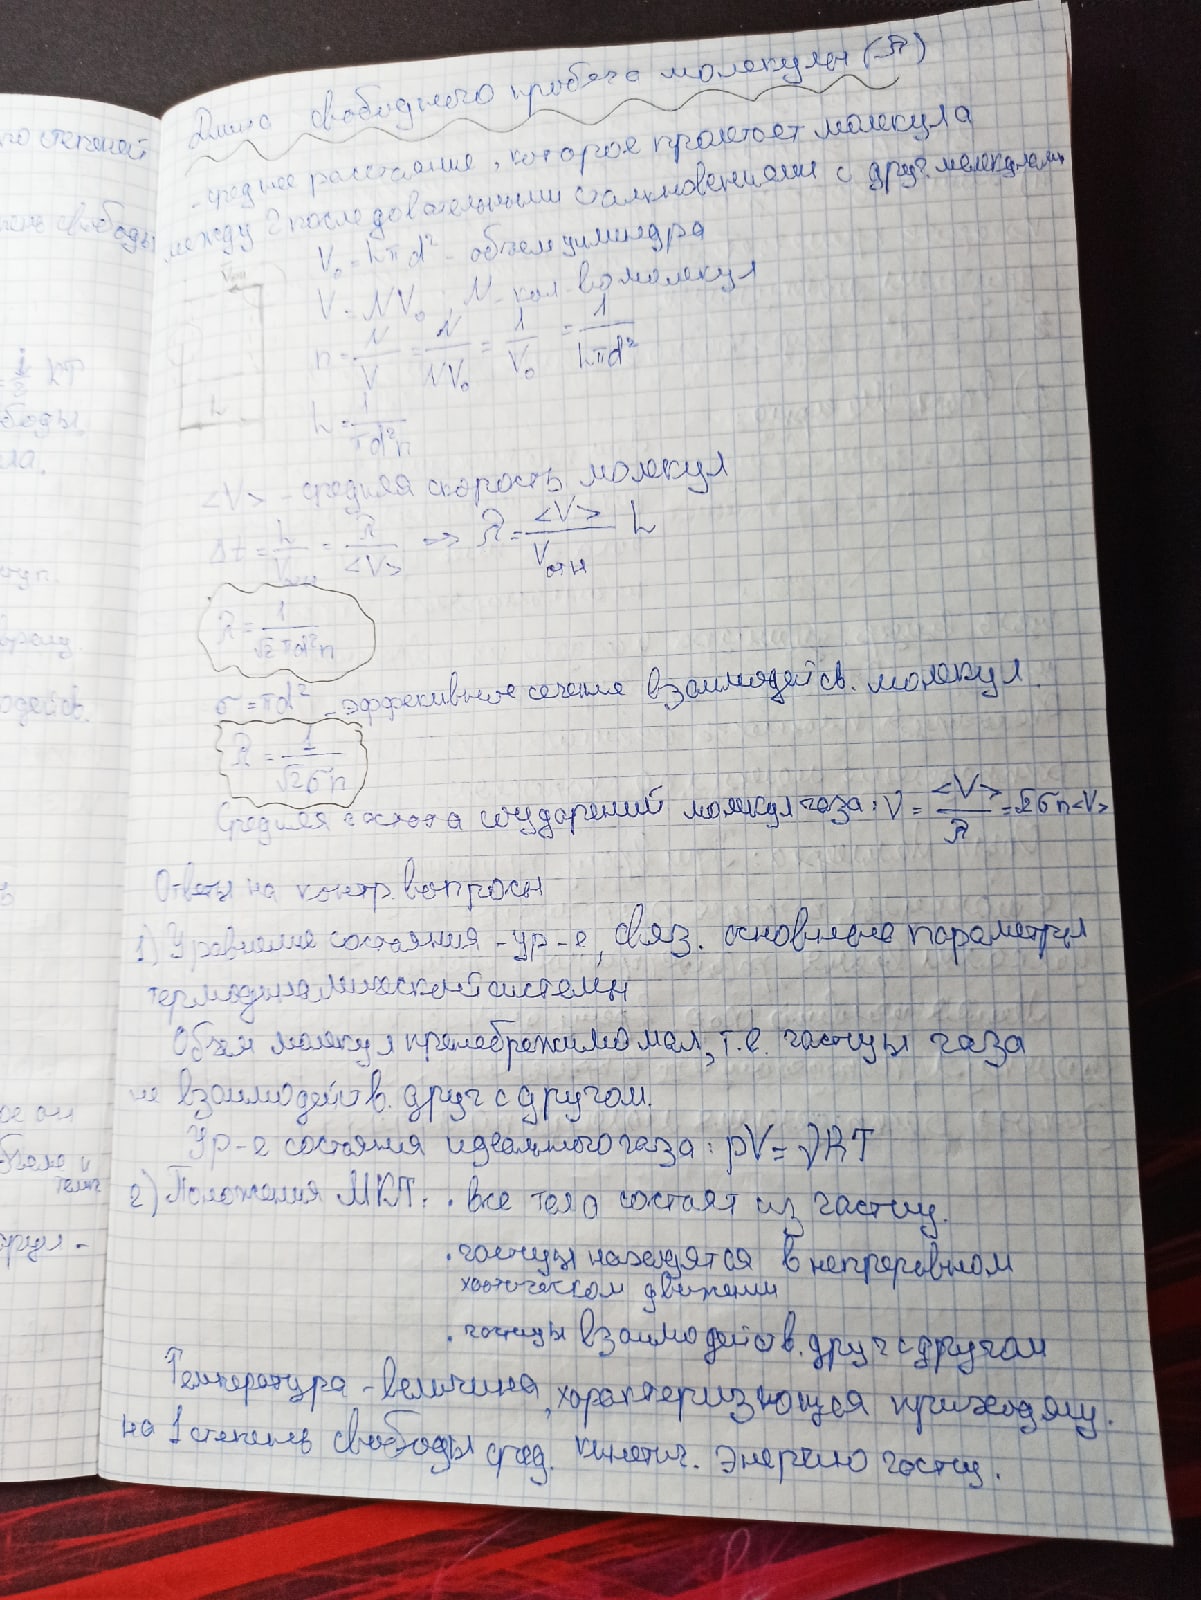 Длина свободного пробега молекулы (λ)
- среднее расстояние, которое пролетает молекула
между 2 последовательными столкновениями с друг. молекулами
V₀ = hπd² - объем цилиндра
V = NV₀ ; N - кол-во молекул
n = N/V = N/NV₀ = 1/V₀ = 1/hπd²
h
h = 1/πd²n
<V> - средняя скорость молекул
Δt = h/Vотн = λ/<V> => λ = <V>/Vотн h
λ = 1/√2πd²n
σ = πd² - эффективное сечение взаимодейств. молекул.
λ = 1/√2σn
Средняя частота соударений молекул газа: ν = <V>/λ = √2σn<V>
Ответы на контр. вопросы
1) Уравнение состояния - ур-е, связ. основные параметры
термодинамической системы
Объем молекул пренебрежимо мал, т.е. частицы газа
не взаимодейств. друг с другом.
Ур-е состояния идеального газа: pV = νRT
2) Положения МКТ: · все тела состоят из частиц.
· частицы находятся в непрерывном
хаотическом движении
· частицы взаимодейств. друг с другом
Температура - величина, характеризующая приходящ.
на 1 степень свободы сред. кинетич. энергию частиц.
по степеней
степень свободы
kT